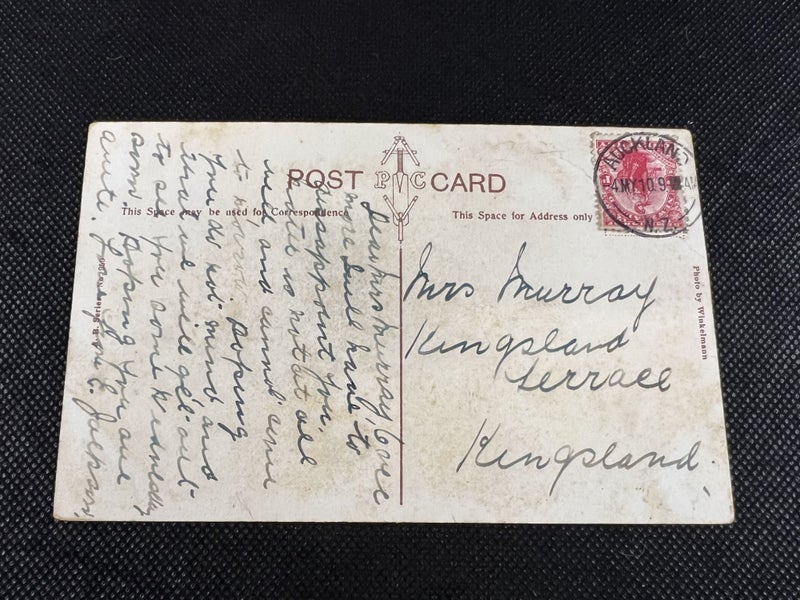 POST PVC CARD
This Space may be used for Correspondence
This Space for Address only
AUCKLAND
4 MY 10 9
N.Z.
Mrs Murray
Kingsland
Terrace
Kingsland.
Photo by Winkelmann
Series
Dear Mrs Murray, Once
more I will have to
disappoint you,
is not at all
well, and cannot come
Hoping
you do not mind and
that we will get out
to see you some Wednesday
soon. Hoping you are
Love from E. Jackson,